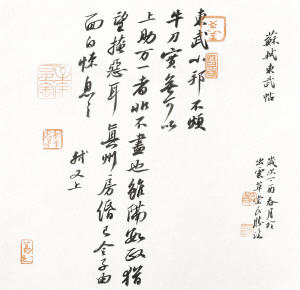 蘇軾東武帖
東武小邦不煩
牛刀實無可以
上助万一者非不盡也雖隔數政猶
望掩惡耳真州房緡已令子由
面白悚息〻
軾又上
歲次丁酉春月於
出雲草堂